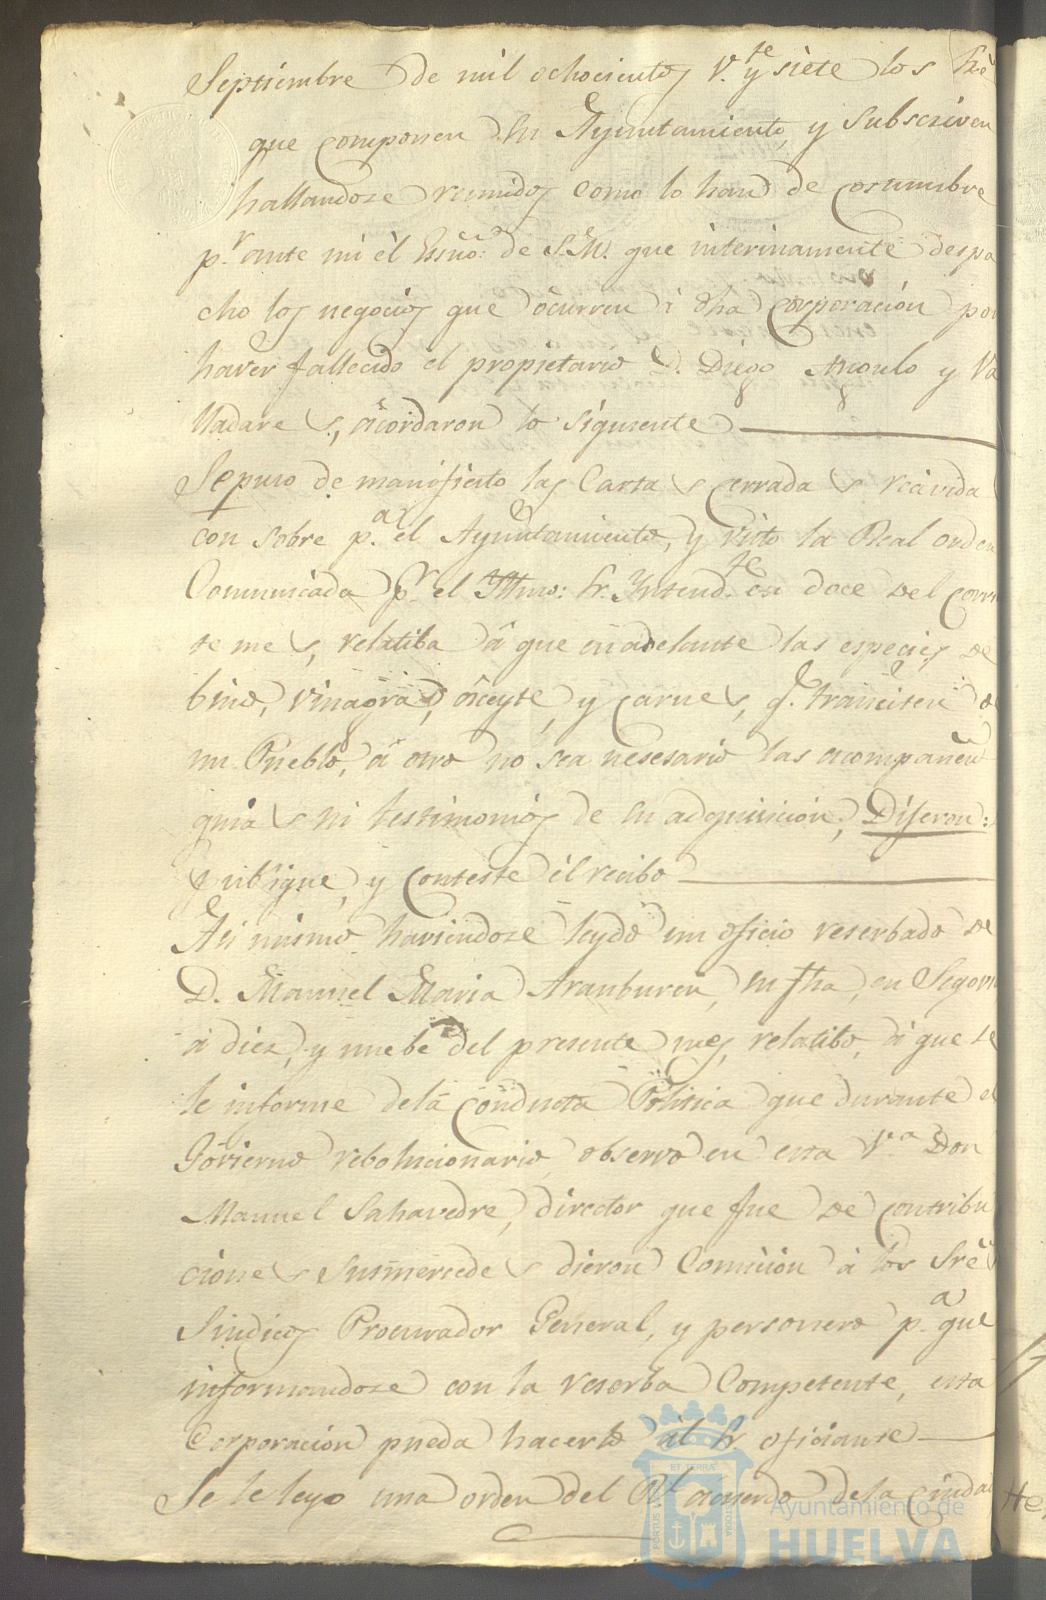 Septiembre de mil ochocientos v.te y siete los Sre
que componen su Ayuntamiento, y subscriven
hallandose reunidos como lo han de costumbre
p.r ante mi él Essno: de S.M. que interinamente despa
cho los negocios que ôcurren á dha Corporación por
haver fallecido el propietario D. Diego Angulo y Va
lladares, acordaron lo siguiente
Sepuso de manifiesto las Cartas cerradas recivida
con sobre p.a el Ayuntamiento, y visto la Real orden
Comunicada p.r el Yltmo: Sr. Yntend.te en doce del corrn
te mes, relatiba á que en adelante las especies de
bino, vinagra, áceyte, y carnes, q.e transiten de
un Pueblo, á otro no sea nesesario las acompañen
guias ni testimonios de su adquisicion, Dijeron:
Publique, y conteste él recibo
Asi mismo haviendose leydo un oficio reserbado de
D. Manuel Maria Aranburen, su fha, en Segorv
á diez, y nuebe del presente mes, relatibo, á que se
le informe dela Conducta Politica que durante el
Govierno rebolucionario observo en esta V.a Don
Manuel Sahavedre, director que fue de contribu
ciones sus mercedes dieron Comicion á los Sres
Sindicos Procurador General, y personero p.a que
informandose con la reserba Competente, esta
Corporacion pueda hacerlo ál Sr. oficiante
Se le leyo una orden del Rl. acuerdo dela Ciudad
PORTUS
ET TERRAE
CUSTODIA
Ayuntamiento de
HUELVA